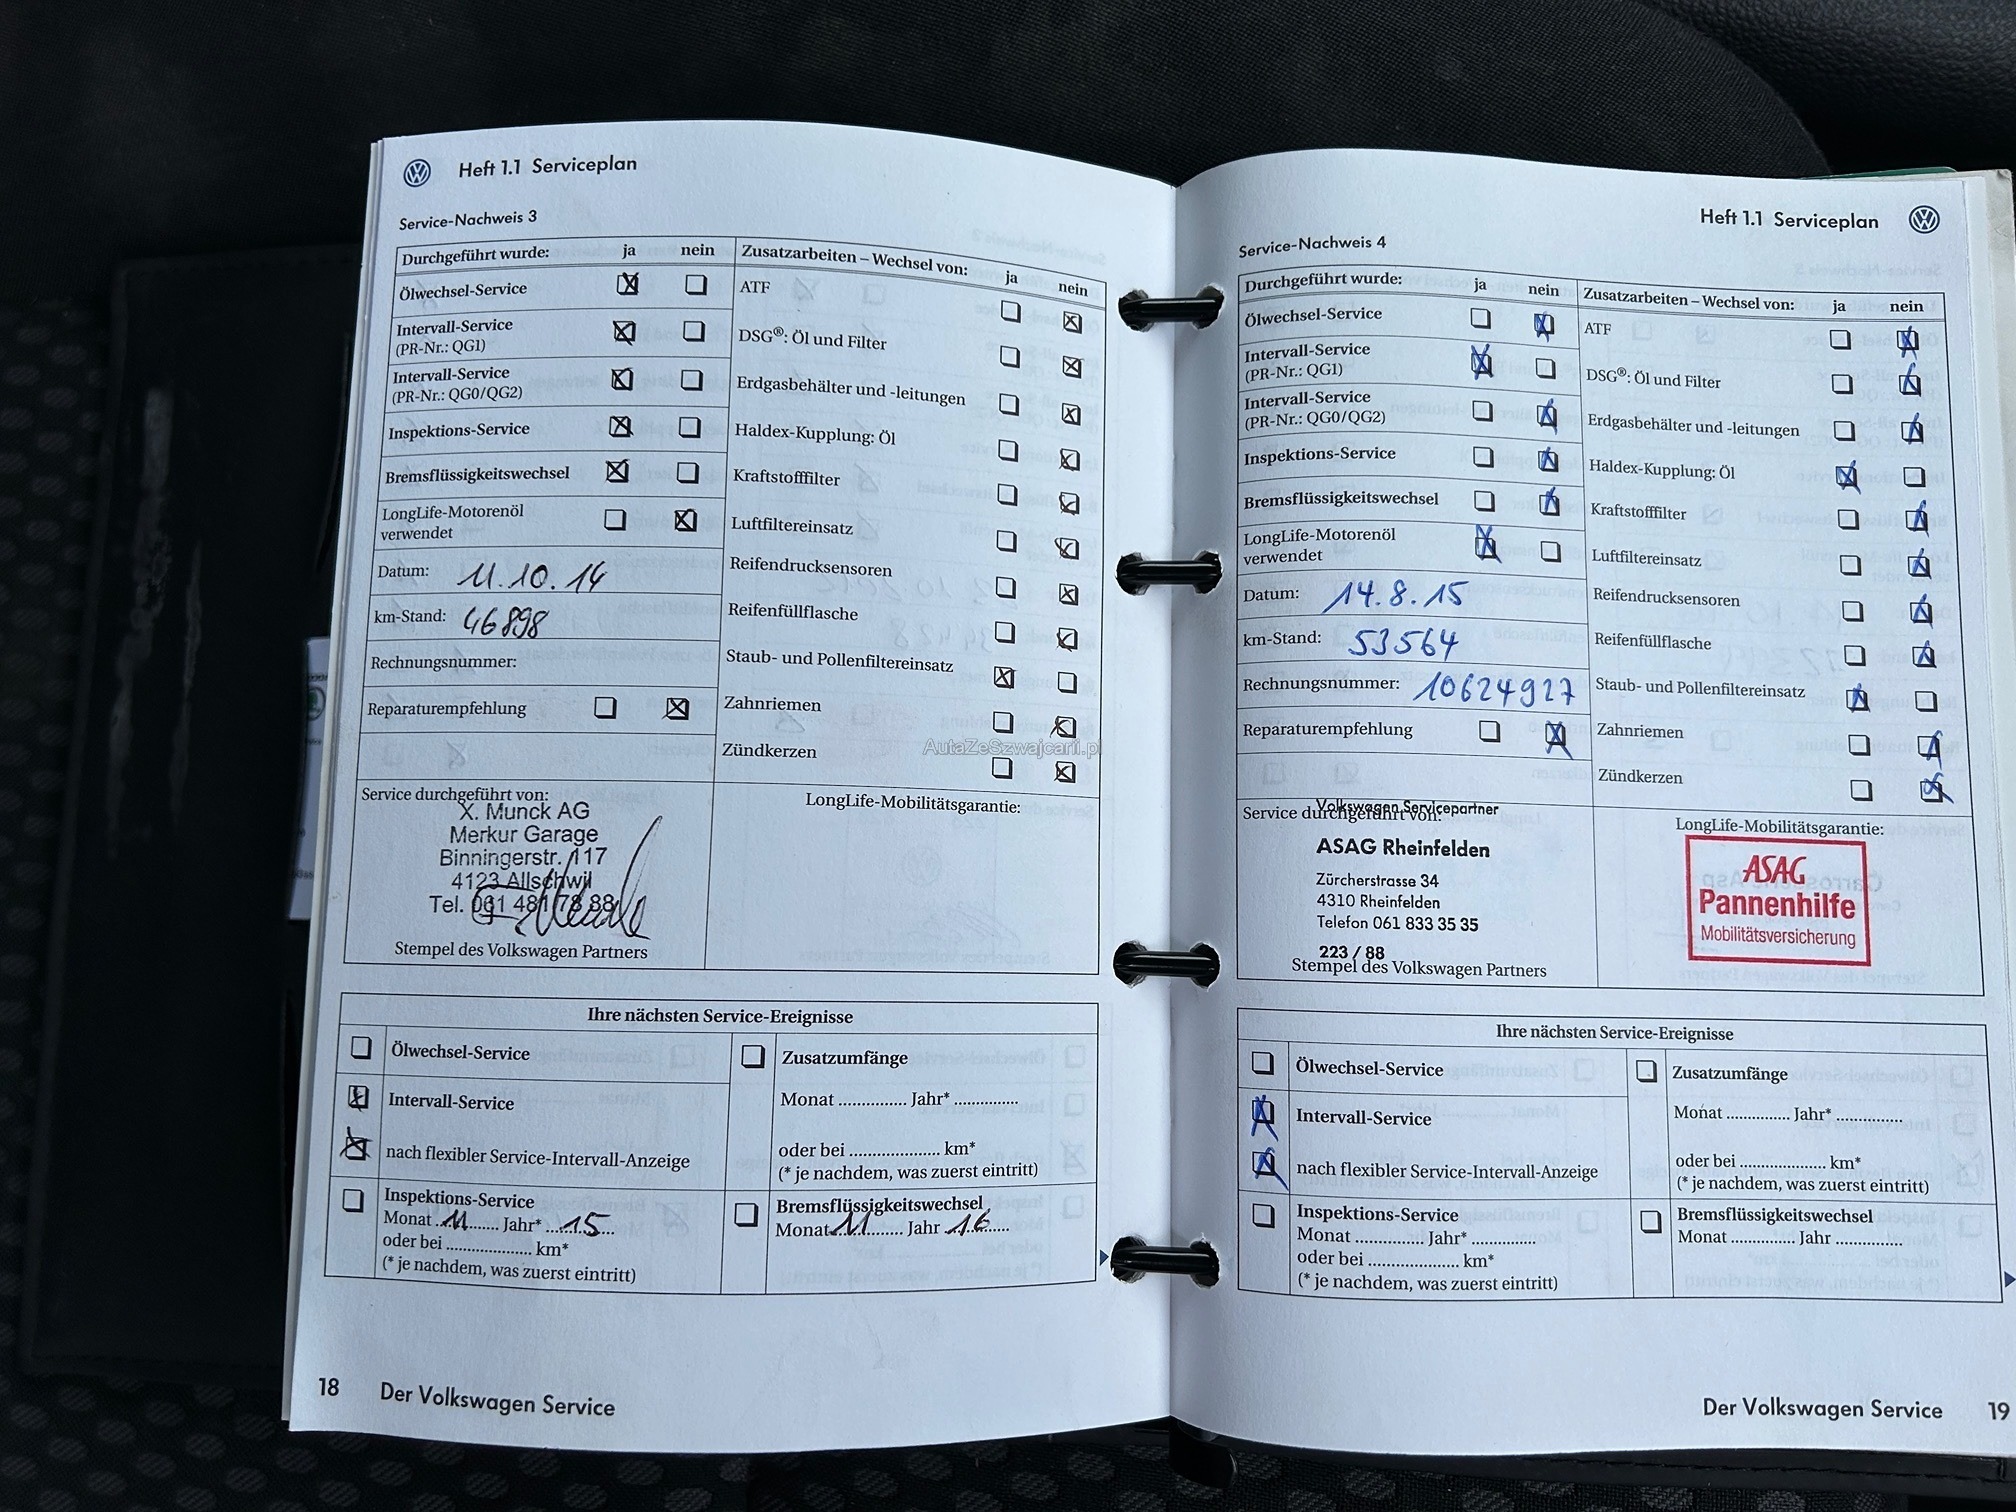 Heft 1.1 Serviceplan
Service-Nachweis 3
Durchgeführt wurde: ja nein
Ölwechsel-Service
Intervall-Service
(PR-Nr.: QG1)
Intervall-Service
(PR-Nr.: QG0/QG2)
Inspektions-Service
Bremsflüssigkeitswechsel
LongLife-Motorenöl
verwendet
Datum: 11.10.14
km-Stand: 46898
Rechnungsnummer:
Reparaturempfehlung
Zusatzarbeiten – Wechsel von: ja nein
ATF
DSG®: Öl und Filter
Erdgasbehälter und -leitungen
Haldex-Kupplung: Öl
Kraftstofffilter
Luftfiltereinsatz
Reifendrucksensoren
Reifenfüllflasche
Staub- und Pollenfiltereinsatz
Zahnriemen
Zündkerzen
Service durchgeführt von:
X. Munck AG
Merkur Garage
Binningerstr. 117
4123 Allschwil
Tel. 061 481 78 88
Stempel des Volkswagen Partners
LongLife-Mobilitätsgarantie:
Ihre nächsten Service-Ereignisse
Ölwechsel-Service
Intervall-Service
nach flexibler Service-Intervall-Anzeige
Inspektions-Service
Monat 11 Jahr* 15
oder bei .................... km*
(* je nachdem, was zuerst eintritt)
Zusatzumfänge
Monat ............... Jahr* ..............
oder bei .................... km*
(* je nachdem, was zuerst eintritt)
Bremsflüssigkeitswechsel
Monat 11 Jahr 16
18 Der Volkswagen Service
Heft 1.1 Serviceplan
Service-Nachweis 4
Durchgeführt wurde: ja nein
Ölwechsel-Service
Intervall-Service
(PR-Nr.: QG1)
Intervall-Service
(PR-Nr.: QG0/QG2)
Inspektions-Service
Bremsflüssigkeitswechsel
LongLife-Motorenöl
verwendet
Datum: 14.8.15
km-Stand: 53564
Rechnungsnummer: 10624927
Reparaturempfehlung
Zusatzarbeiten – Wechsel von: ja nein
ATF
DSG®: Öl und Filter
Erdgasbehälter und -leitungen
Haldex-Kupplung: Öl
Kraftstofffilter
Luftfiltereinsatz
Reifendrucksensoren
Reifenfüllflasche
Staub- und Pollenfiltereinsatz
Zahnriemen
Zündkerzen
Volkswagen Servicepartner
Service durchgeführt von:
ASAG Rheinfelden
Zürcherstrasse 34
4310 Rheinfelden
Telefon 061 833 35 35
223 / 88
Stempel des Volkswagen Partners
LongLife-Mobilitätsgarantie:
ASAG
Pannenhilfe
Mobilitätsversicherung
Ihre nächsten Service-Ereignisse
Ölwechsel-Service
Intervall-Service
nach flexibler Service-Intervall-Anzeige
Inspektions-Service
Monat ............... Jahr* ..............
oder bei .................... km*
(* je nachdem, was zuerst eintritt)
Zusatzumfänge
Monat .............. Jahr* ...............
oder bei .................... km*
(* je nachdem, was zuerst eintritt)
Bremsflüssigkeitswechsel
Monat ............... Jahr ...............
Der Volkswagen Service 19
AutaZeSzwajcarii.pl